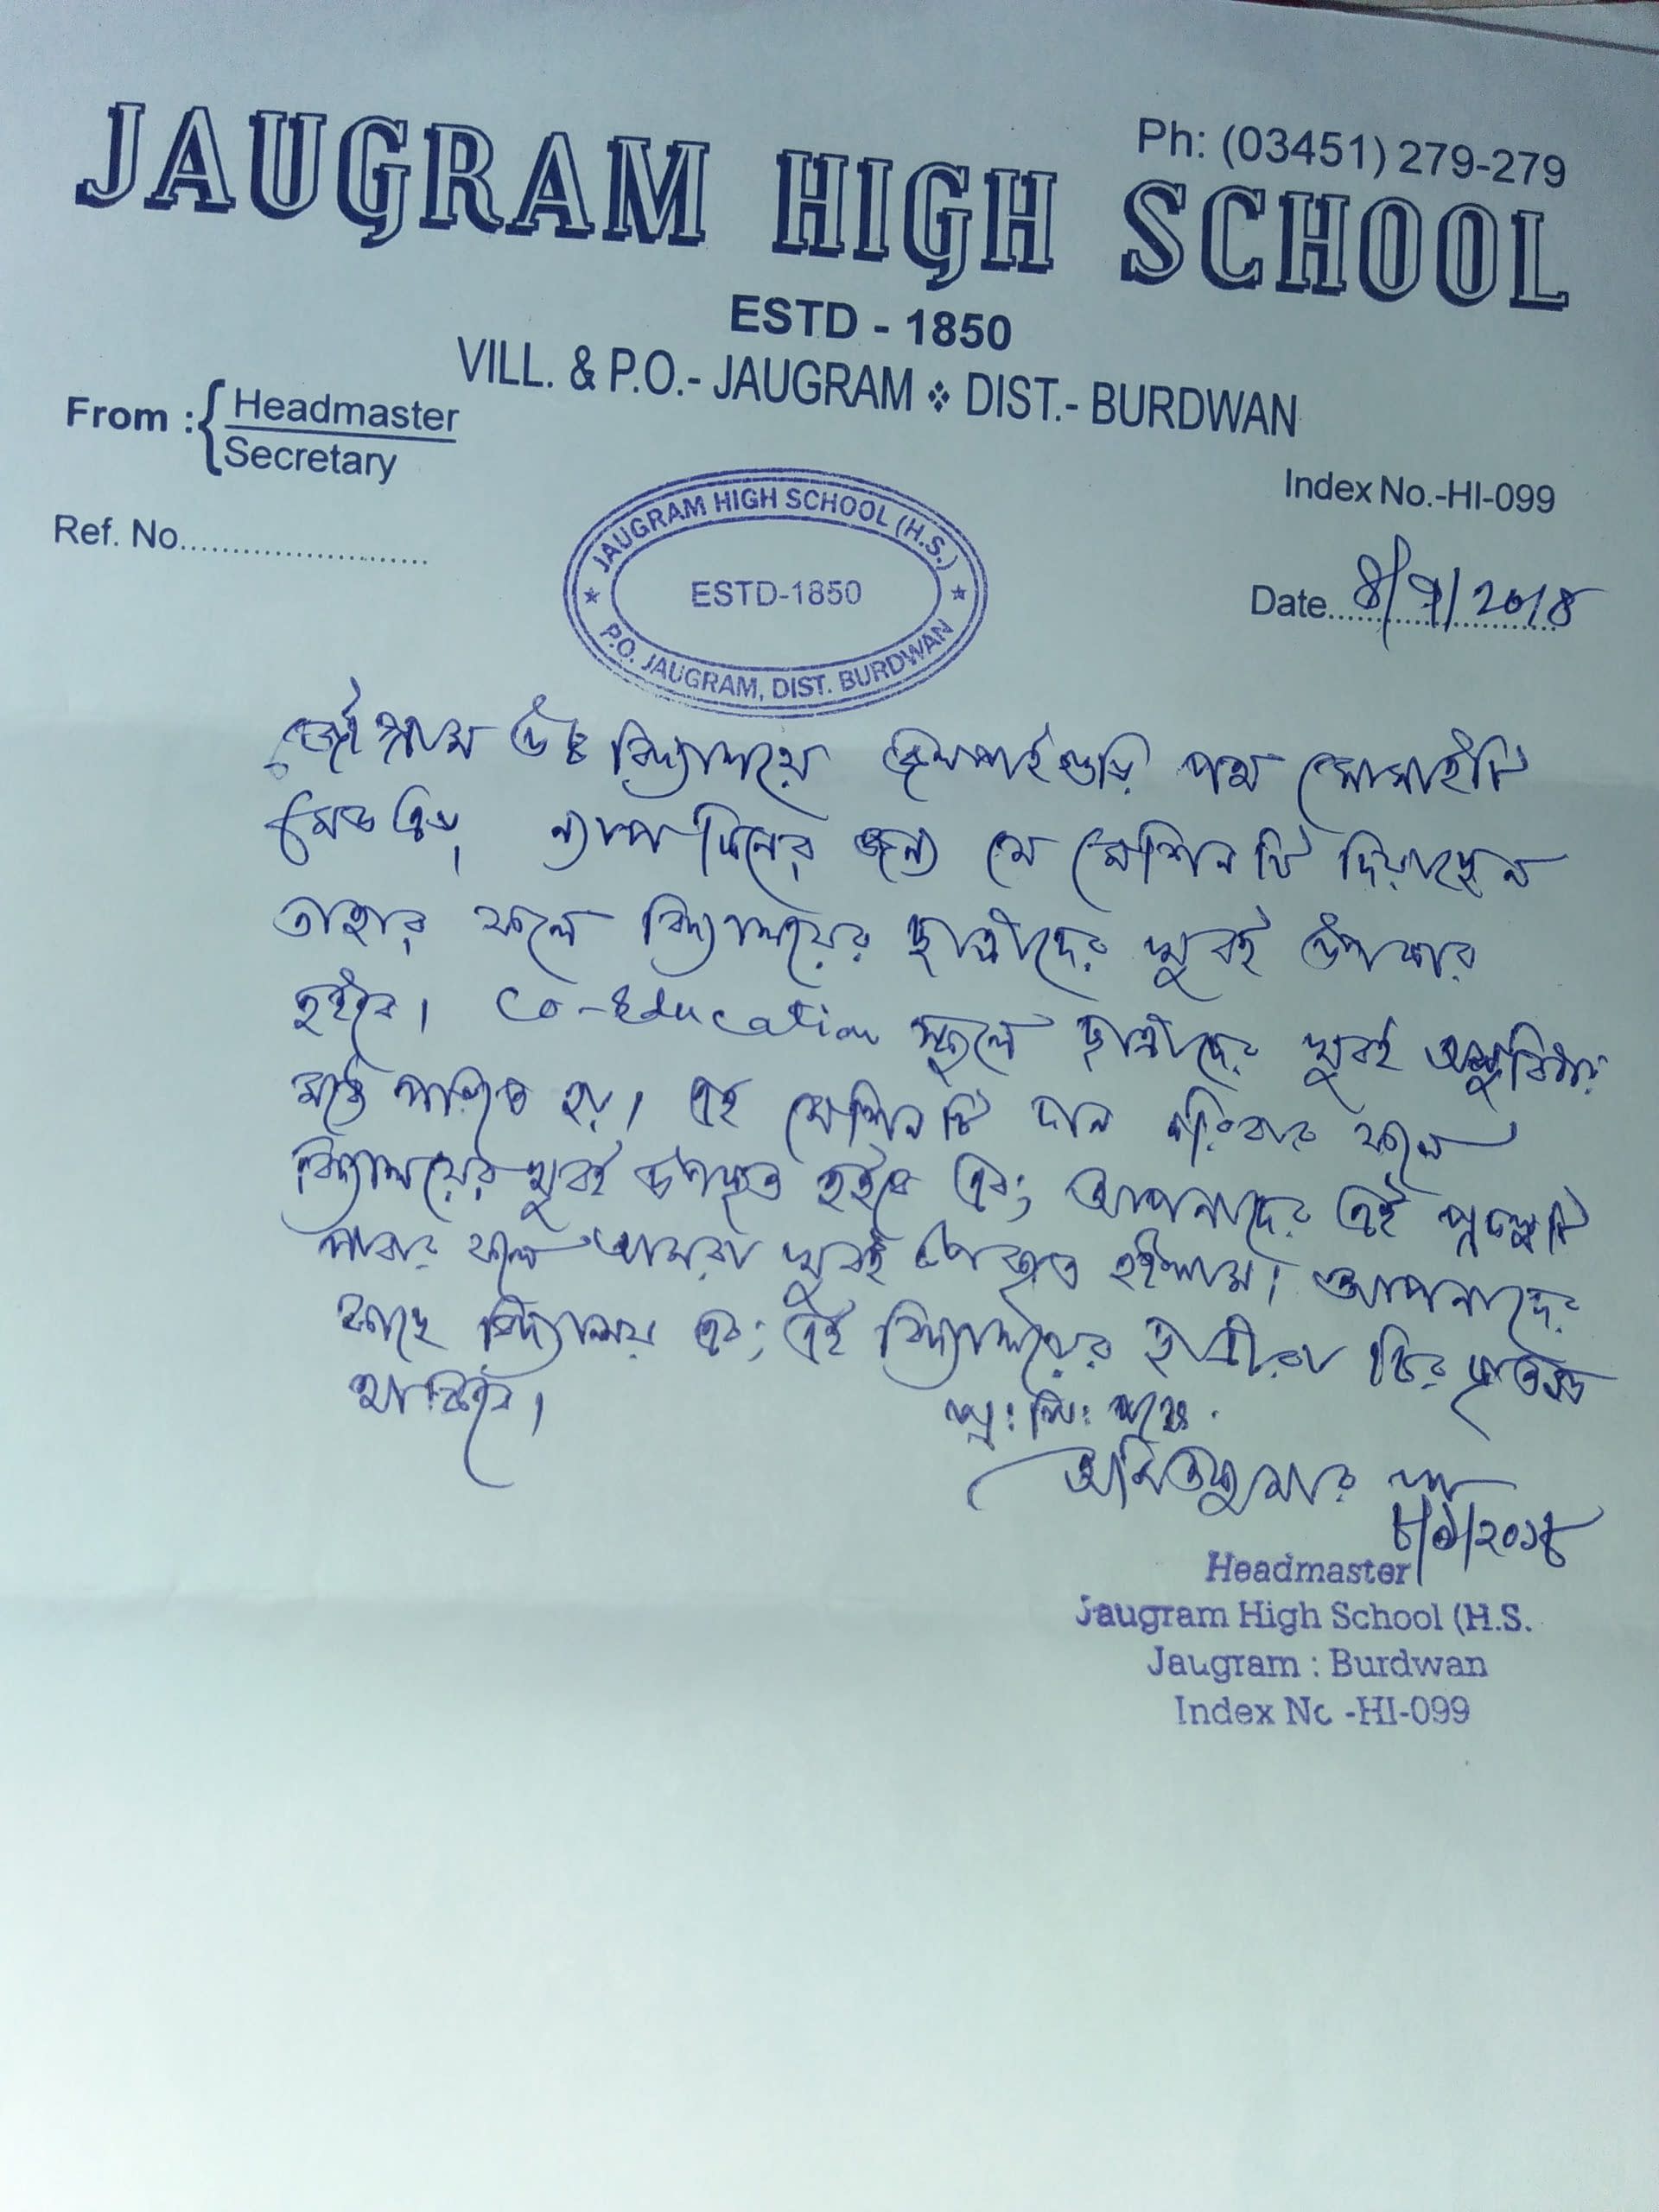 Ph: (03451) 279-279
JAUGRAM HIGH SCHOOL
ESTD - 1850
VILL. & P.O.- JAUGRAM ❖ DIST.- BURDWAN
From : { Headmaster
Secretary
Index No.-HI-099
Ref. No.
JAUGRAM HIGH SCHOOL (H.S.)
ESTD-1850
P.O. JAUGRAM, DIST. BURDWAN
Date 8/9/2018
জৌগ্রাম উচ্চ বিদ্যালয়ে জলপাইগুড়ি সোসাইটি
ন্যাপকিনের জন্য যে মেশিনটি দিয়াছেন
তাহার ফলে বিদ্যালয়ের ছাত্রীদের খুবই উপকার
হইবে। Co-Education স্কুলে ছাত্রীদের খুবই অসুবিধার
মধ্যে পড়িতে হয়। এই মেশিনটি দান করিবার ফলে
বিদ্যালয়ের খুবই উপকৃত হইবে এবং আপনাদের এই
পাবার ফলে আমরা খুবই উপকৃত হইলাম। আপনাদের
কাছে বিদ্যালয় এবং এই বিদ্যালয়ের ছাত্রীরা চির কৃতজ্ঞ
থাকিবে।
৮/৯/২০১৮
Headmaster
Jaugram High School (H.S.
Jaugram : Burdwan
Index No -HI-099